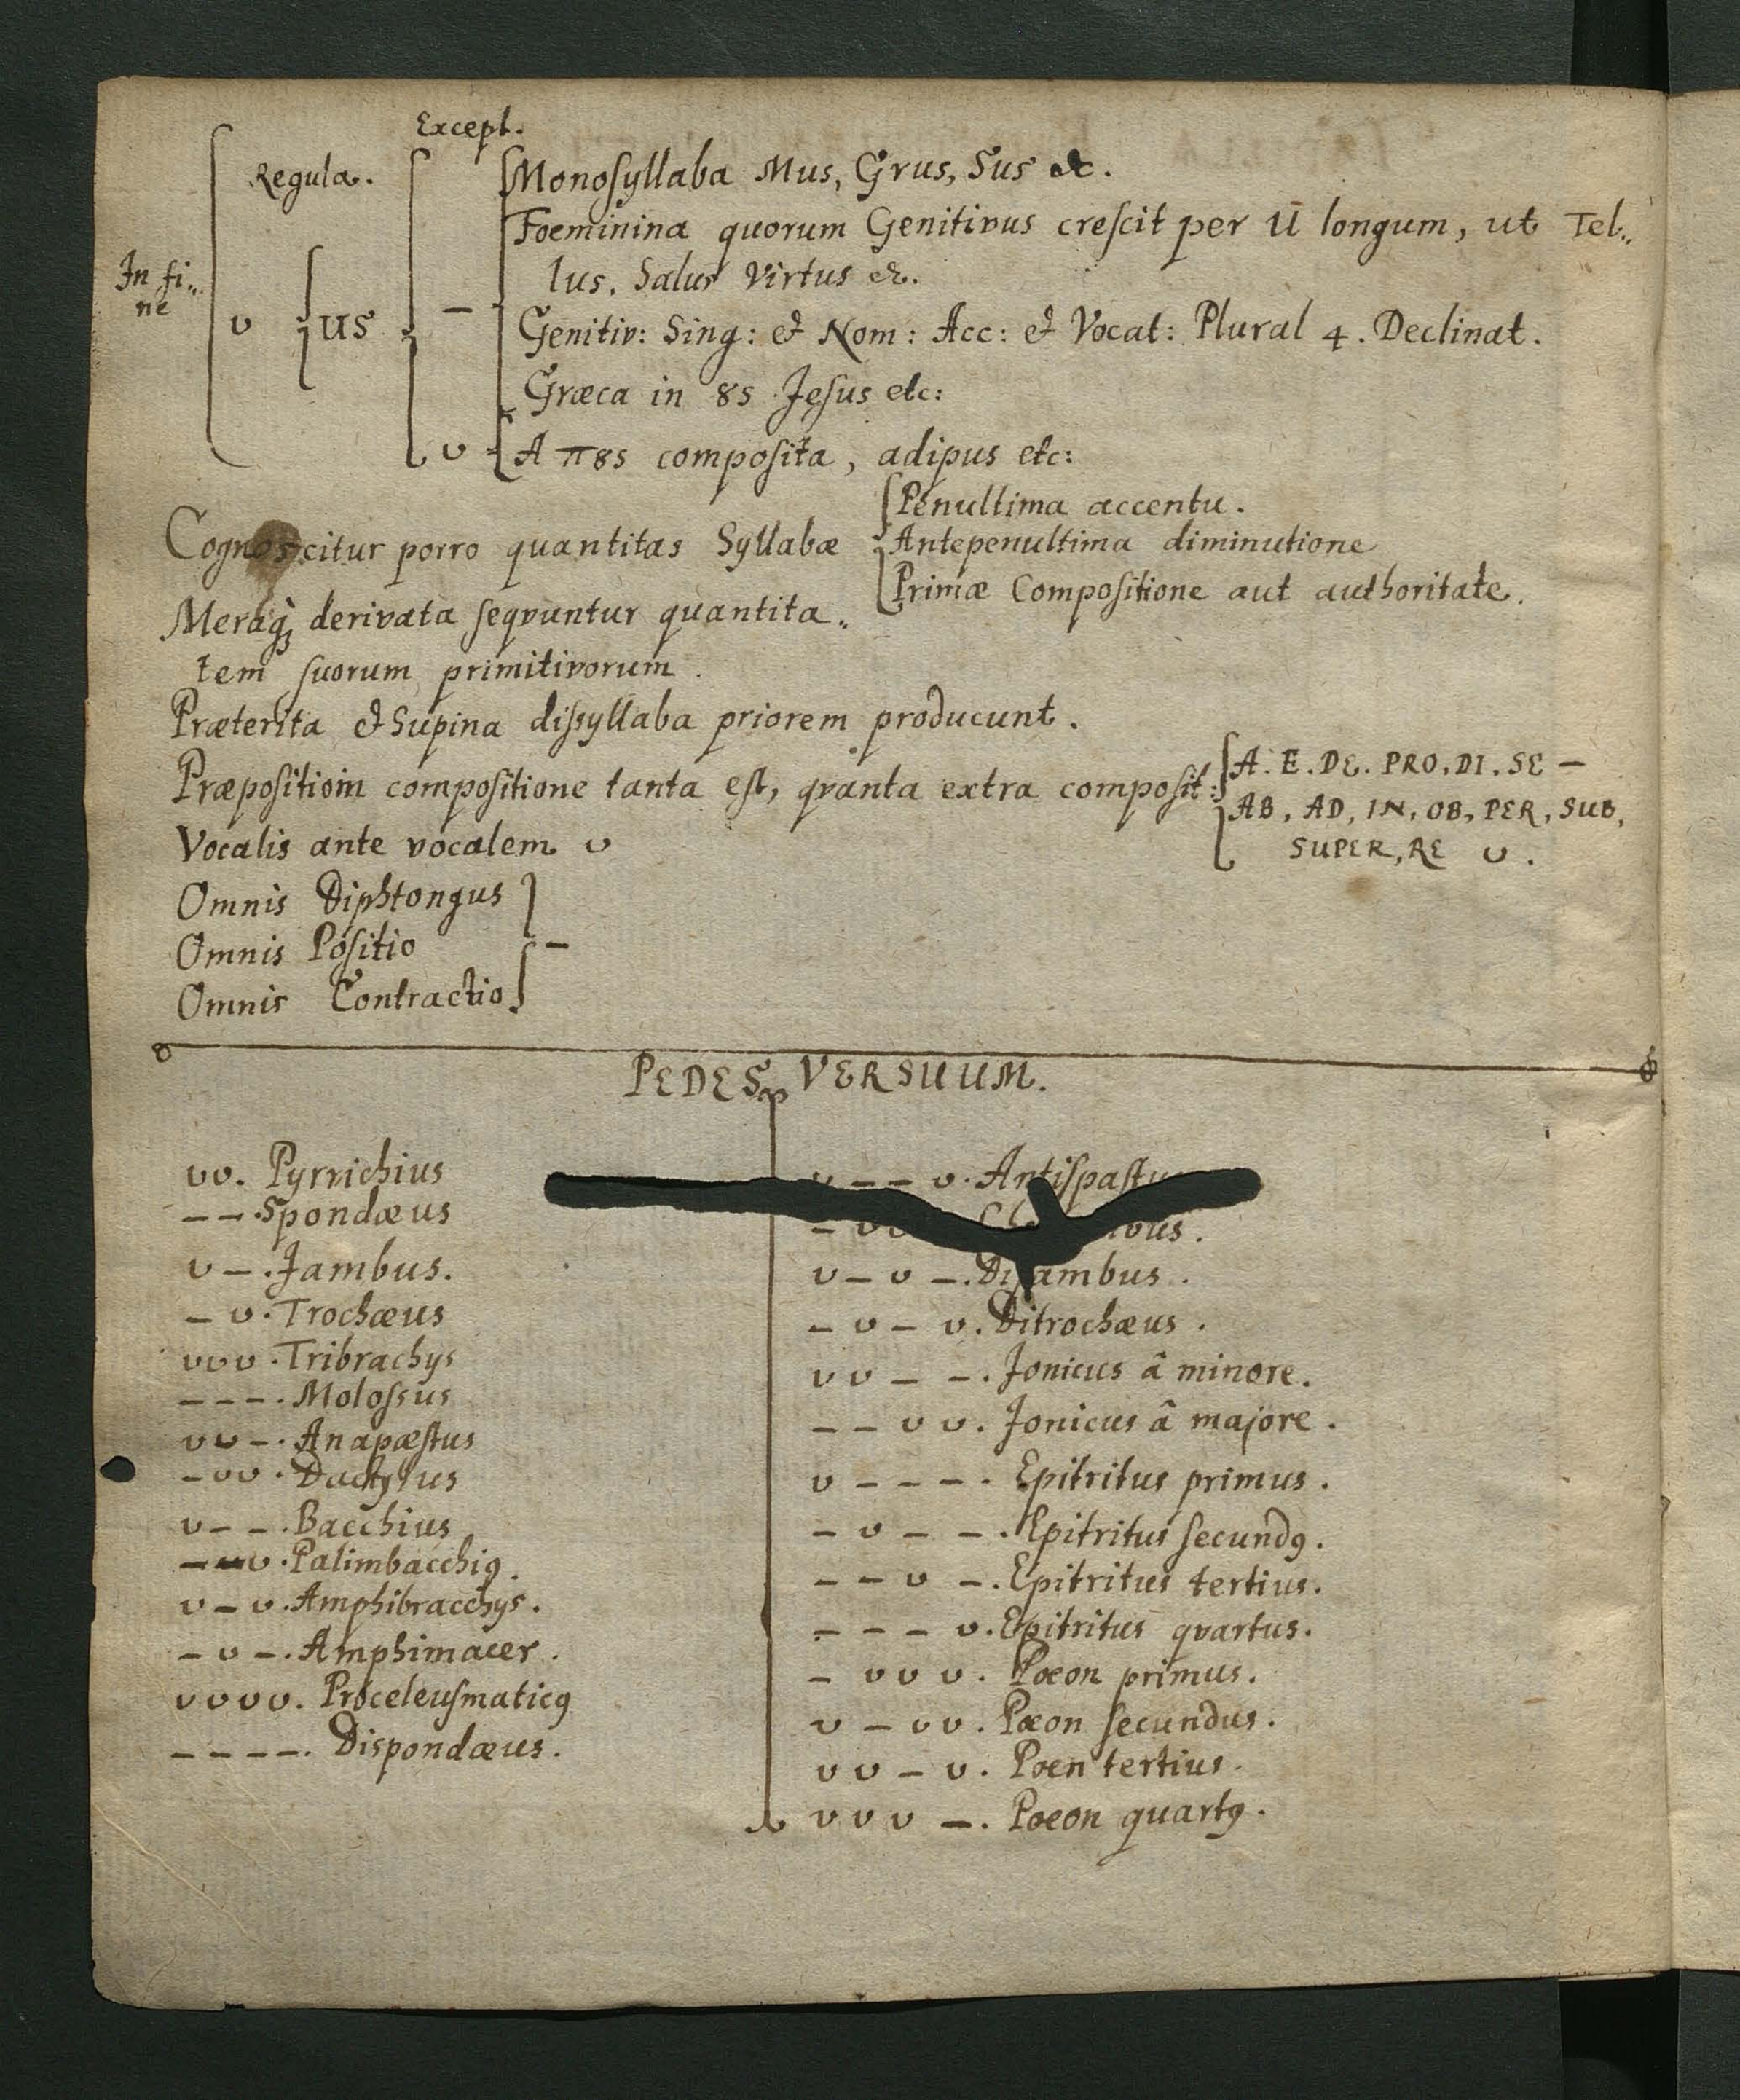 Except.
Regula.
Monosyllaba Mus, Grus, Sus &c.
Foeminina quorum Genitivus crescit per Ū longum, ut Tel„
lus. Salus Virtus &c.
In fi„
ne
υ us –
Genitiv: Sing: & Nom: Acc: & Vocat: Plural 4. Declinat.
Græca in 8s Jesus etc:
υ A π8s composita, adipus etc:
Penultima accentu.
Cognoscitur porro quantitas Syllabæ Antepenultima diminutione
Primæ Compositione aut authoritate.
derivata seqvuntur quantita„
tem suorum primitivorum.
Præterita & Supina dissyllaba priorem producunt.
A. E. DE. PRO. DI. SE –
compositione tanta est, qvanta extra composit:
AB, AD, IN, OB, PER, SUB,
SUPER, RE υ.
Vocalis ante vocalem υ
Omnis Diphtongus
Omnis Positio –
Omnis Contractio
PEDES VERSUUM.
υυ. Pyrrichius
– –. Spondæus
υ –. Jambus.
– υ. Trochæus
υυυ. Tribrachys
– – –. Molossus
υυ –. Anapæstus
– υυ. Dactylus
υ – –. Bacchius
– – υ. Palimbacchiꝯ.
υ – υ. Amphibracchys.
– υ –. Amphimacer.
υυυυ. Proceleusmaticꝯ
– – – –. Dispondæus.
υ – – υ. Antispastu
– υ
υ – υ –. Dijambus.
– υ – υ. Ditrochæus.
υυ – –. Jonicus â minore.
– – υυ. Jonicus â majore.
υ – – –. Epitritus primus.
– υ – –. Epitritus secundꝯ.
– – υ –. Epitritus tertius.
– – – υ. Epitritus qvartus.
– υυυ. Pæon primus.
υ – υυ. Pæon secundus.
υυ – υ. Poen tertius.
υυυ –. Poeon quartꝯ.